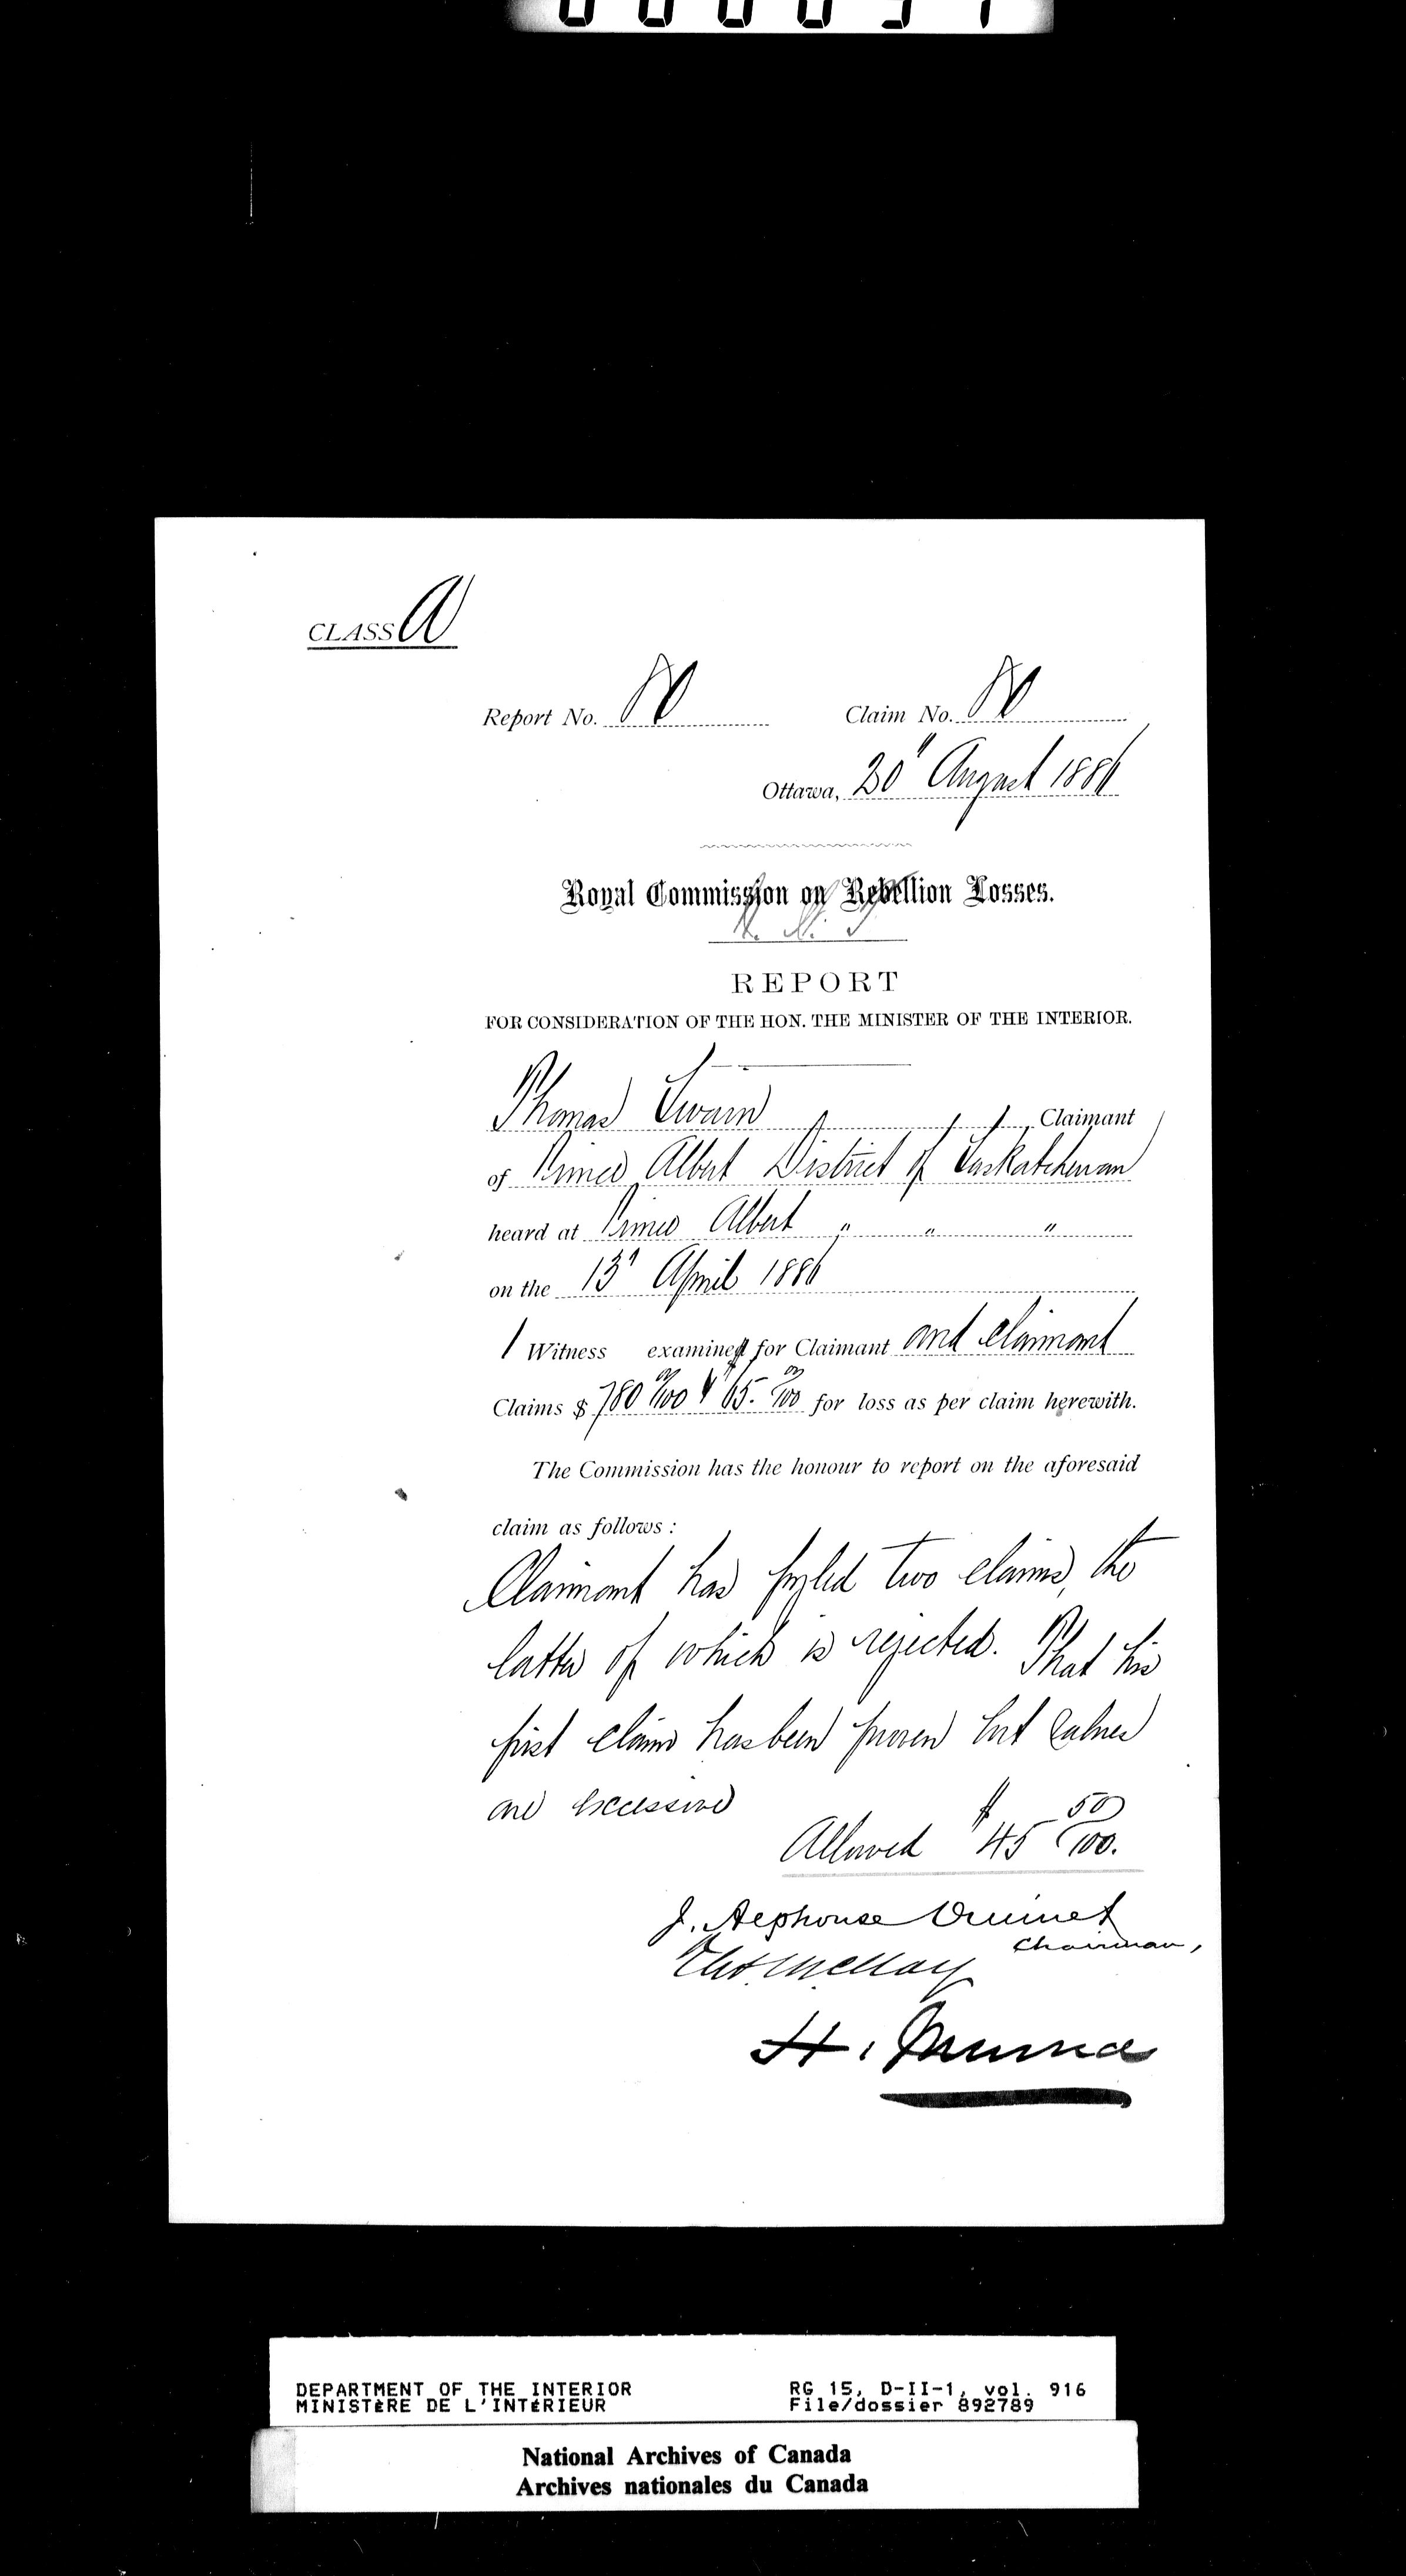 CLASS A
Report No. 80 Claim No. 80
Ottawa, 20" August 1886
Royal Commission on Rebellion Losses.
REPORT
FOR CONSIDERATION OF THE HON. THE MINISTER OF THE INTERIOR.
Thomas Swain Claimant
of Prince Albert District of Saskatchewan
heard at Prince Albert " " "
on the 13" April 1886
1 Witness examined for Claimant and Claimant
Claims $ 780 00/100 & 65. 00/100 for loss as per claim herewith.
The Commission has the honour to report on the aforesaid
claim as follows :
Claimant has fyled two claims, the
latter of which is rejected. That his
first claim has been proven but values
are excessive
Allowed $45 50/100.
J. Alphonse Ouimet
Chairman,
H. Muma
DEPARTMENT OF THE INTERIOR RG 15, D-II-1, vol. 916
MINISTÈRE DE L'INTÉRIEUR File/dossier 892789
National Archives of Canada
Archives nationales du Canada